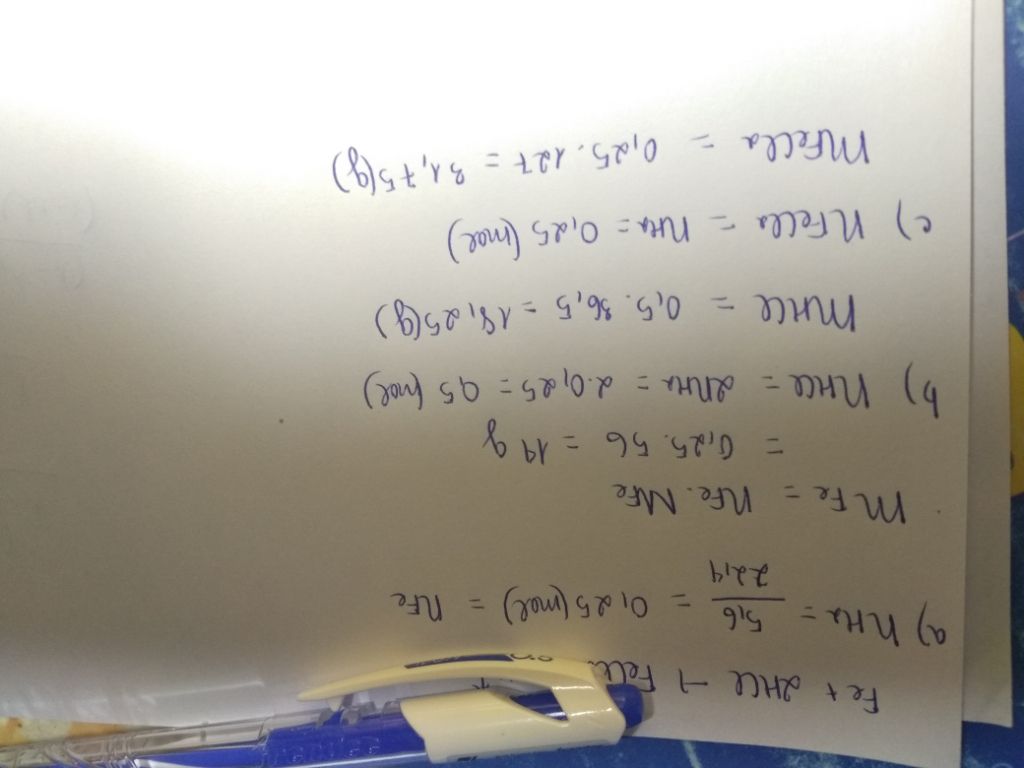 Fe + 2HCl → FeCl
a) nH2 = 5,6 / 22,4 = 0,25 (mol) = nFe
mFe = nFe . MFe
= 0,25 . 56 = 14 g
b) nHCl = 2nH2 = 2.0,25 = 0,5 (mol)
mHCl = 0,5 . 36,5 = 18,25 (g)
c) nFeCl2 = nH2 = 0,25 (mol)
mFeCl2 = 0,25 . 127 = 31,75 (g)